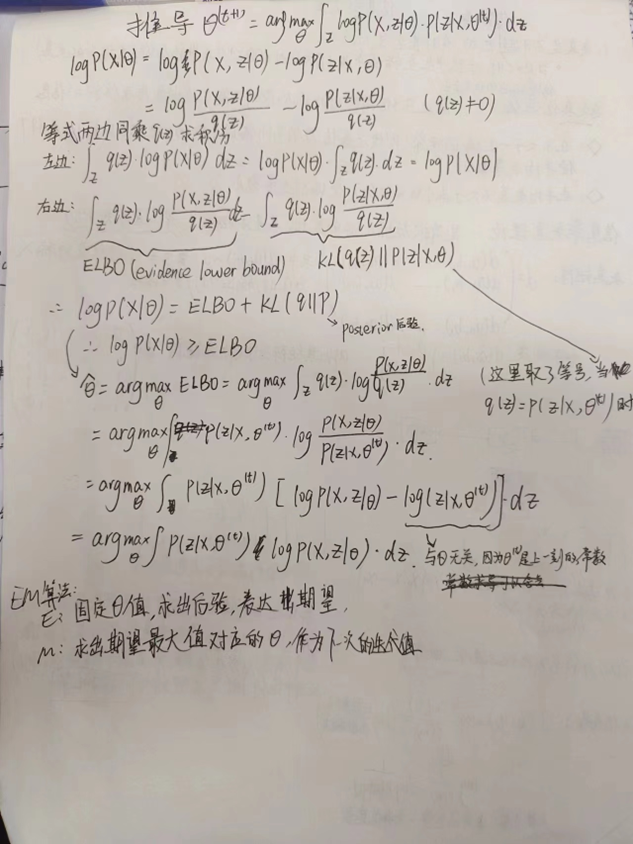 推导 θ^(t+1) = argmax_θ ∫_z logP(X,z|θ)·P(z|X,θ^(t))·dz
logP(X|θ) = logP(X,z|θ) - logP(z|X,θ)
= log P(X,z|θ)/q(z) - log P(z|X,θ)/q(z) (q(z)≠0)
等式两边同乘q(z)求积分
左边: ∫_z q(z)·logP(X|θ) dz = logP(X|θ)·∫_z q(z)·dz = logP(X|θ)
右边: ∫_z q(z)·log P(X,z|θ)/q(z) dz - ∫_z q(z)·log P(z|X,θ)/q(z)
ELBO (evidence lower bound) KL(q(z)||P(z|X,θ)
∴ logP(X|θ) = ELBO + KL(q||P)
posterior后验.
∴ logP(X|θ) ≥ ELBO
θ̂ = argmax_θ ELBO = argmax_θ ∫_z q(z)·log P(X,z|θ)/q(z) ·dz (这里取了等号,当
q(z)=P(z|X,θ^(t))时
= argmax_θ ∫ P(z|X,θ^(t))·log P(X,z|θ)/P(z|X,θ^(t)) ·dz.
= argmax_θ ∫ P(z|X,θ^(t)) [logP(X,z|θ) - log(z|X,θ^(t))]·dz
= argmax_θ ∫ P(z|X,θ^(t)) logP(X,z|θ)·dz. 与θ无关,因为θ^(t)是上一刻的,常数
EM算法:
E: 固定θ值,求出后验,表达出期望,
M: 求出期望最大值对应的θ,作为下次的迭代值